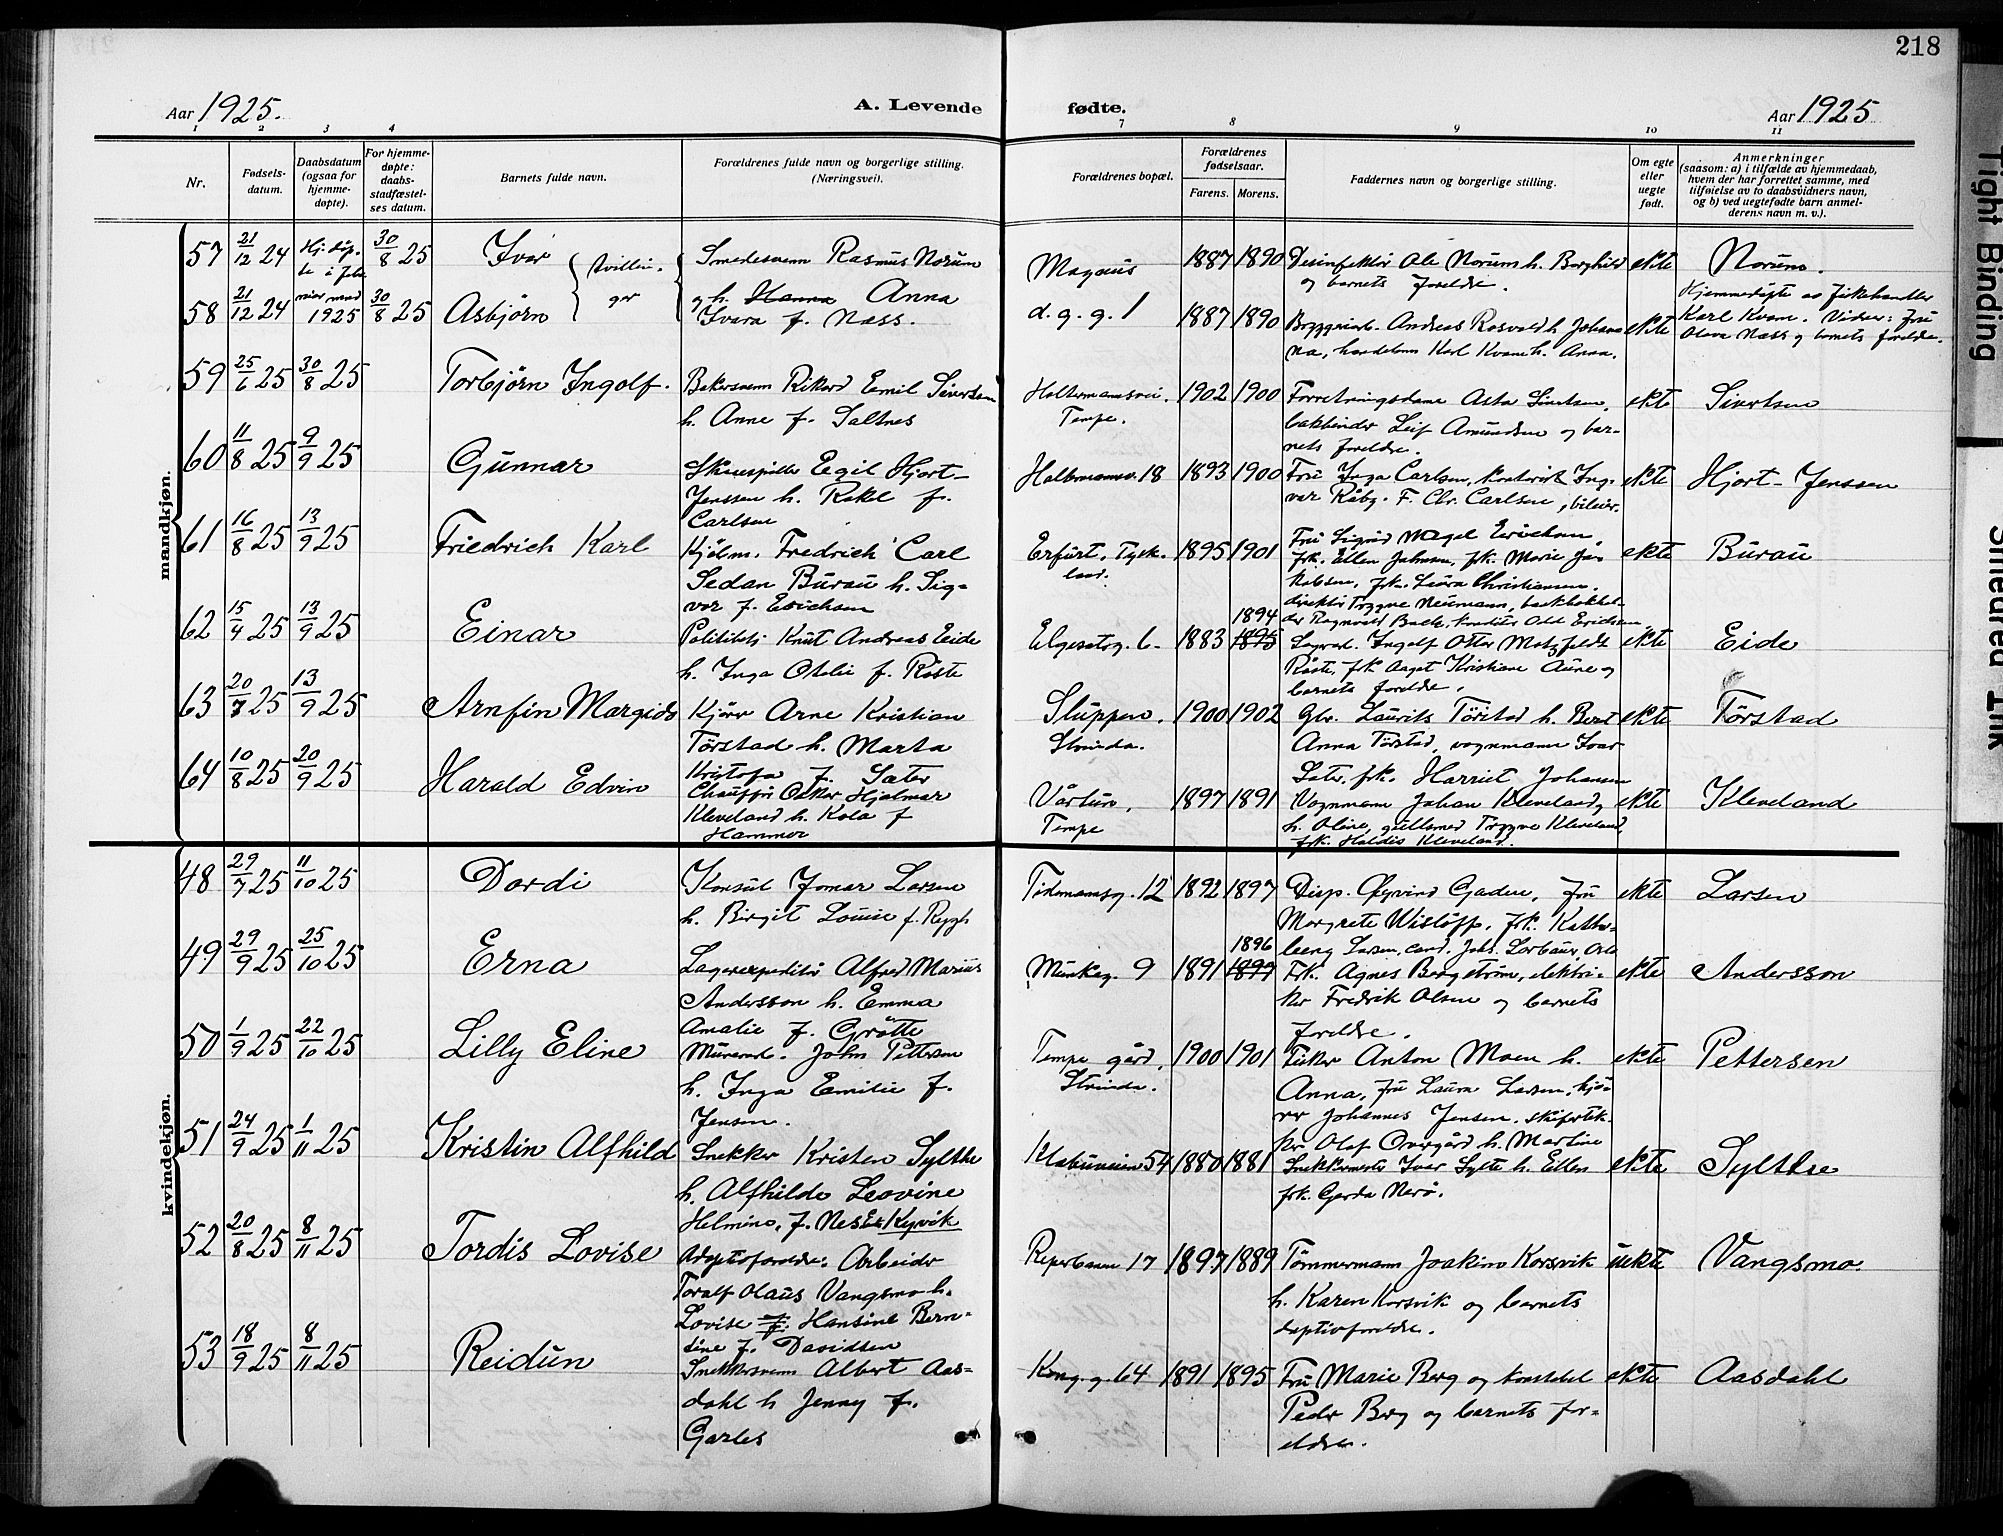 218
Aar 1925.
A. Levende fødte.
Aar 1925
1 2 3 4 7 8 9 10 11
Nr.
Fødsels-
datum.
Daabsdatum
(ogsaa for
hjemme-
døpte).
For hjemme-
døpte:
daabs-
stadfæstel-
ses datum.
Barnets fulde navn.
Forældrenes fulde navn og borgerlige stilling.
(Næringsvei).
Forældrenes bopæl.
Forældrenes
fødselsaar.
Farens. Morens.
Faddernes navn og borgerlige stilling.
Om egte
eller
uegte
født.
Anmerkninger
(saasom: a) i tilfælde av hjemmedaab,
hvem der har forrettet samme, med
tilføielse av to daabsvidners navn,
og b) ved uegtefødte barn anmel-
derens navn m. v.).
mandkjøn.
57 21/12 24 Hj. døp-
te i fe
mars
1925
30/8 25 Ivar
tvillin-
ger
Smedesvenn Rasmus Norum
Magnus 1887 1890
Desinfektør Ole Norum h. Borghild
og barnets foreldre.
ekte Norum.
58 21/12 24 30/8 25 Asbjørn
og h. Hanna Anna
Ivara f. Næss.
d. g. g. 1 1887 1890
Bryggeriarb. Andreas Rosvold h. Johan-
na, handelsm Karl Kvam h. Anna.
ekte
Hjemmedøpte av fiskehandler
Karl Kvam. Vidner: Fru
Olava Næss og barnets foreldre.
59 25/6 25 30/8 25 Torbjørn Ingolf.
Bakersvenn Rikard Emil Sivertsen
h. Anne f. Saltnes
Holtermannsvei.
Tempe.
1902 1900
Forretningsdame Asta Sivertsen,
bokbinder Leif Amundsen og bar-
nets foreldre.
ekte Sivertsen
60 11/8 25 9/9 25 Gunnar
Skuespiller Egil Hjort-
Jenssen h. Rakel f.
Carlsen
Holtermannsv. 18 1893 1900
Fru Inga Carlsen, kontorist Ing-
var Råby. F. Chr. Carlsen, bileier.
ekte Hjort-Jenssen
61 16/8 25 13/9 25 Friedrich Karl
Kjøbm. Fredrich Carl
Sedan Burau h. Sig-
vor f. Erichsen
Erfurt, Tysk-
land.
1895 1901
Fru Sigrid Magel Erichsen,
frk. Ellen Johnsen, frk. Marie Ja-
kobsen, frk. Laura Christiansen.
direktør Trygve Neumann, bankbokhol-
der Ragnvald Bach, konditor Odd Erichsen
ekte Burau
62 15/4 25 13/9 25 Einar
Politibetj. Knut Andreas Eide
h. Inga Otelie f. Røste
Elgesetsg. 6. 1883 1894 1895
Lagerarb. Ingolf Otter Matzfeldt
Røste, frk. Aagot Kristiane Aune og
barnets foreldre.
ekte Eide
63 20/7 25 13/9 25 Arnfin Margido
Kjører Arne Kristian
Tørstad h. Marta
Kristofa f. Sæter
Sluppen,
Strinda.
1900 1902
Gbr. Laurits Tørstad h. Beret
Anna Tørstad, vognmann Ivar
Sæter, frk. Harriet Johansen
ekte Tørstad
64 10/8 25 20/9 25 Harald Edvin
Chauffør Oskar Hjalmar
Kleveland h. Kola f
Hammer
Vårtun,
Tempe
1897 1891
Vognmann Johan Kleveland,
h. Oline, gullsmed Trygve Kleveland,
frk. Haldis Kleveland.
ekte Kleveland
kvindekjøn.
48 29/7 25 11/10 25 Dordi
Konsul Jomar Larsen
h. Birgit Louise f. Rygh
Tidemansg. 12 1892 1897
Disp. Øyvind Gaden, Fru
Margrete Wisløff, Frk. Kath-
leeng Larsen, cand. Johs. Lorbauer, Oslo
ekte Larsen
49 29/9 25 25/10 25 Erna
Lagerexpeditør Alfred Marius
Andersson h. Emma
Amalie f. Grøtte
Munkeg. 9 1891 1896 1899
Frk. Agnes Bergstrøm, elektri-
ker Fredrik Olsen og barnets
foreldre.
ekte Andersson
50 1/9 25 22/10 25 Lilly Eline
Murerarb. John Pettersen
h. Inga Emilie f.
Jensen.
Tempe gård,
Strinda.
1900 1901
Fisker Anton Moen h.
Anna, Fru Laura Larsen, kjø-
rer Johannes Jensen, skifertek-
ker Olaf Overgård h. Martine
ekte Pettersen
51 24/9 25 1/11 25 Kristin Alfhild
Snekker Kristen Sylthe
h. Alfhilde Leovine
Helmine, f. Nes
Klæbuveien 54 1880 1881
Snekkermester Ivar Sylte h. Ellen
frk. Gerda Nerø.
ekte Sylthe
52 20/8 25 8/11 25 Tordis Lovise
Adoptivforeldre: Arbeider
Toralf Olaus Vangsmo h.
Lovise f. Hansine Bern-
tine f. Davidsen
Reperbanen 17 1897 1889
Tømmermann Joakim Korsvik
h. Karen Korsvik og barnets
adoptivforeldre.
uekte Vangsmo.
53 18/9 25 8/11 25 Reidun
Snekkersvenn Albert Aas-
dahl h Jenny f.
Garles
Kong. g. 64 1891 1895
Fru Marie Berg og konstabel
Peder Berg og barnets for-
eldre.
ekte Aasdahl
Tight Binding
Smeared Ink